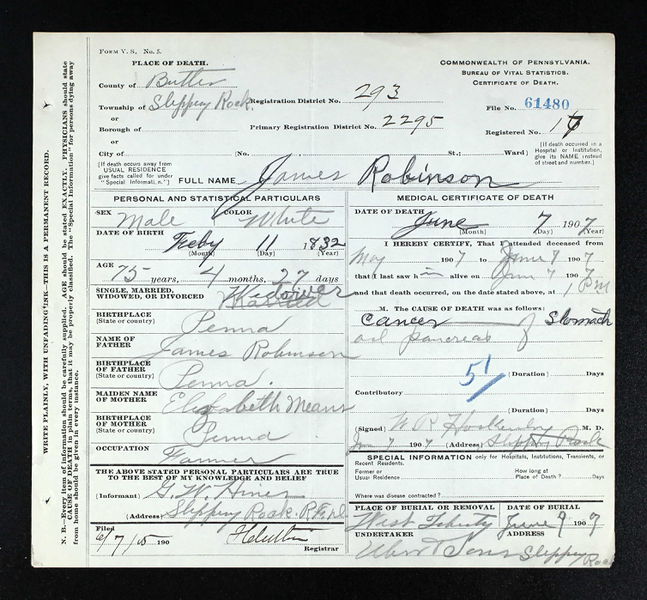 Form V. S. No. 5.
PLACE OF DEATH.
County of Butler
Township of Slippery Rock.
or
Borough of
or
City of
Registration District No. 293
Primary Registration District No. 2295
(No. St.; Ward)
COMMONWEALTH OF PENNSYLVANIA.
BUREAU OF VITAL STATISTICS.
CERTIFICATE OF DEATH.
File No. 61480
Registered No.
[If death occurred in a Hospital or Institution, give its NAME instead of street and number.]
[If death occurs away from USUAL RESIDENCE give facts called for under "Special Informati n."]
FULL NAME James Robinson
PERSONAL AND STATISTICAL PARTICULARS
SEX Male COLOR White
DATE OF BIRTH Feby 11 1832
(Month) (Day) (Year)
AGE 75 years, 4 months, 27 days
SINGLE, MARRIED, WIDOWED, OR DIVORCED Widower
BIRTHPLACE (State or country) Penna
NAME OF FATHER James Robinson
BIRTHPLACE OF FATHER (State or country) Penna.
MAIDEN NAME OF MOTHER Elizabeth Means
BIRTHPLACE OF MOTHER (State or country) Penna
OCCUPATION Farmer
THE ABOVE STATED PERSONAL PARTICULARS ARE TRUE TO THE BEST OF MY KNOWLEDGE AND BELIEF
(Informant) G. W. Hines
(Address) Slippery Rock.
Filed 6/7/05 190
Registrar
MEDICAL CERTIFICATE OF DEATH
DATE OF DEATH June 7 1907
(Month) (Day) (Year)
I HEREBY CERTIFY, That I attended deceased from
May 1907 to June 7 1907
that I last saw him alive on June 7 1907
and that death occurred, on the date stated above, at 1 P
M. The CAUSE OF DEATH was as follows:
Cancer of Stomach
and pancreas
51
(Duration) Days
Contributory
(Duration) Days
(Signed) W. R. Hockenby M. D.
June 7 1907 (Address) Slippery Rock
SPECIAL INFORMATION only for Hospitals, Institutions, Transients, or Recent Residents.
Former or Usual Residence
How long at Place of Death? Days
Where was disease contracted?
PLACE OF BURIAL OR REMOVAL West Liberty
DATE OF BURIAL June 9 1907
UNDERTAKER
ADDRESS Slippery Rock
WRITE PLAINLY, WITH UNFADING INK—THIS IS A PERMANENT RECORD.
N. B.—Every item of information should be carefully supplied. AGE should be stated EXACTLY. PHYSICIANS should state CAUSE OF DEATH in plain terms, that it may be properly classified. The "Special Information" for persons dying away from home should be given in every instance.